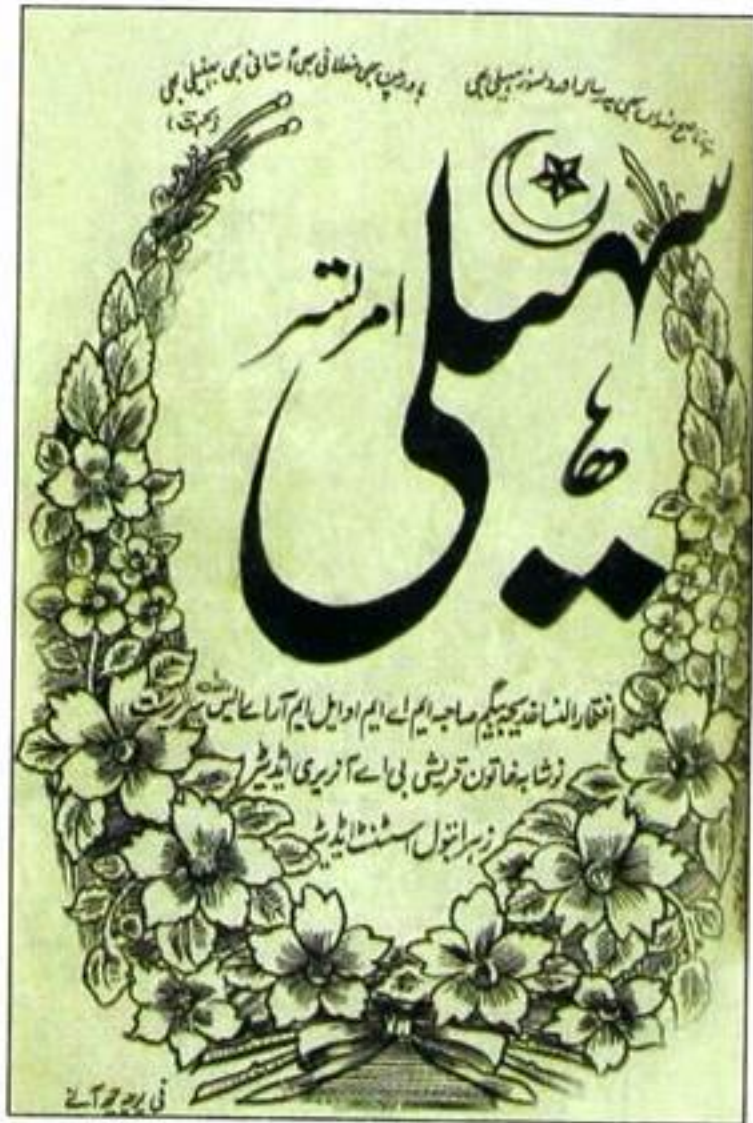 ناصح نسواں بھی یہ رسالہ اور دلسوز سہیلی بھی
باورچن بھی مغلانی بھی اُستانی بھی
سہیلی
امرتسر
افتخار النسا خدیجہ بیگم صاحبہ ایم اے ایم او ایل ایم آر اے ایس سرپرست
نوشابہ خاتون قریشی بی اے آنریری ایڈیٹر
زہرا بتول اسسٹنٹ ایڈیٹر
فی پرچہ چھ آنے